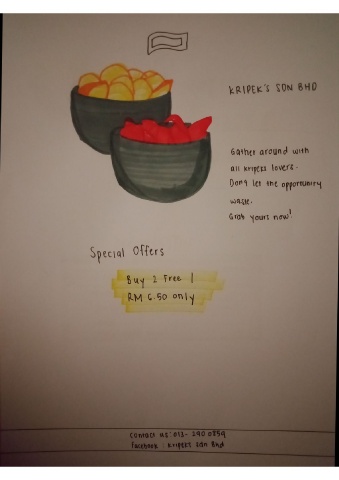 KRIPEK'S SDN BHD
Gather around with
all kripeks lovers.
Dont let the opportunity
waste.
Grab yours now!
Special Offers
Buy 2 Free 1
RM 6.50 only
Contact us: 013- 290 0859
Facebook : Kripeks Sdn Bhd